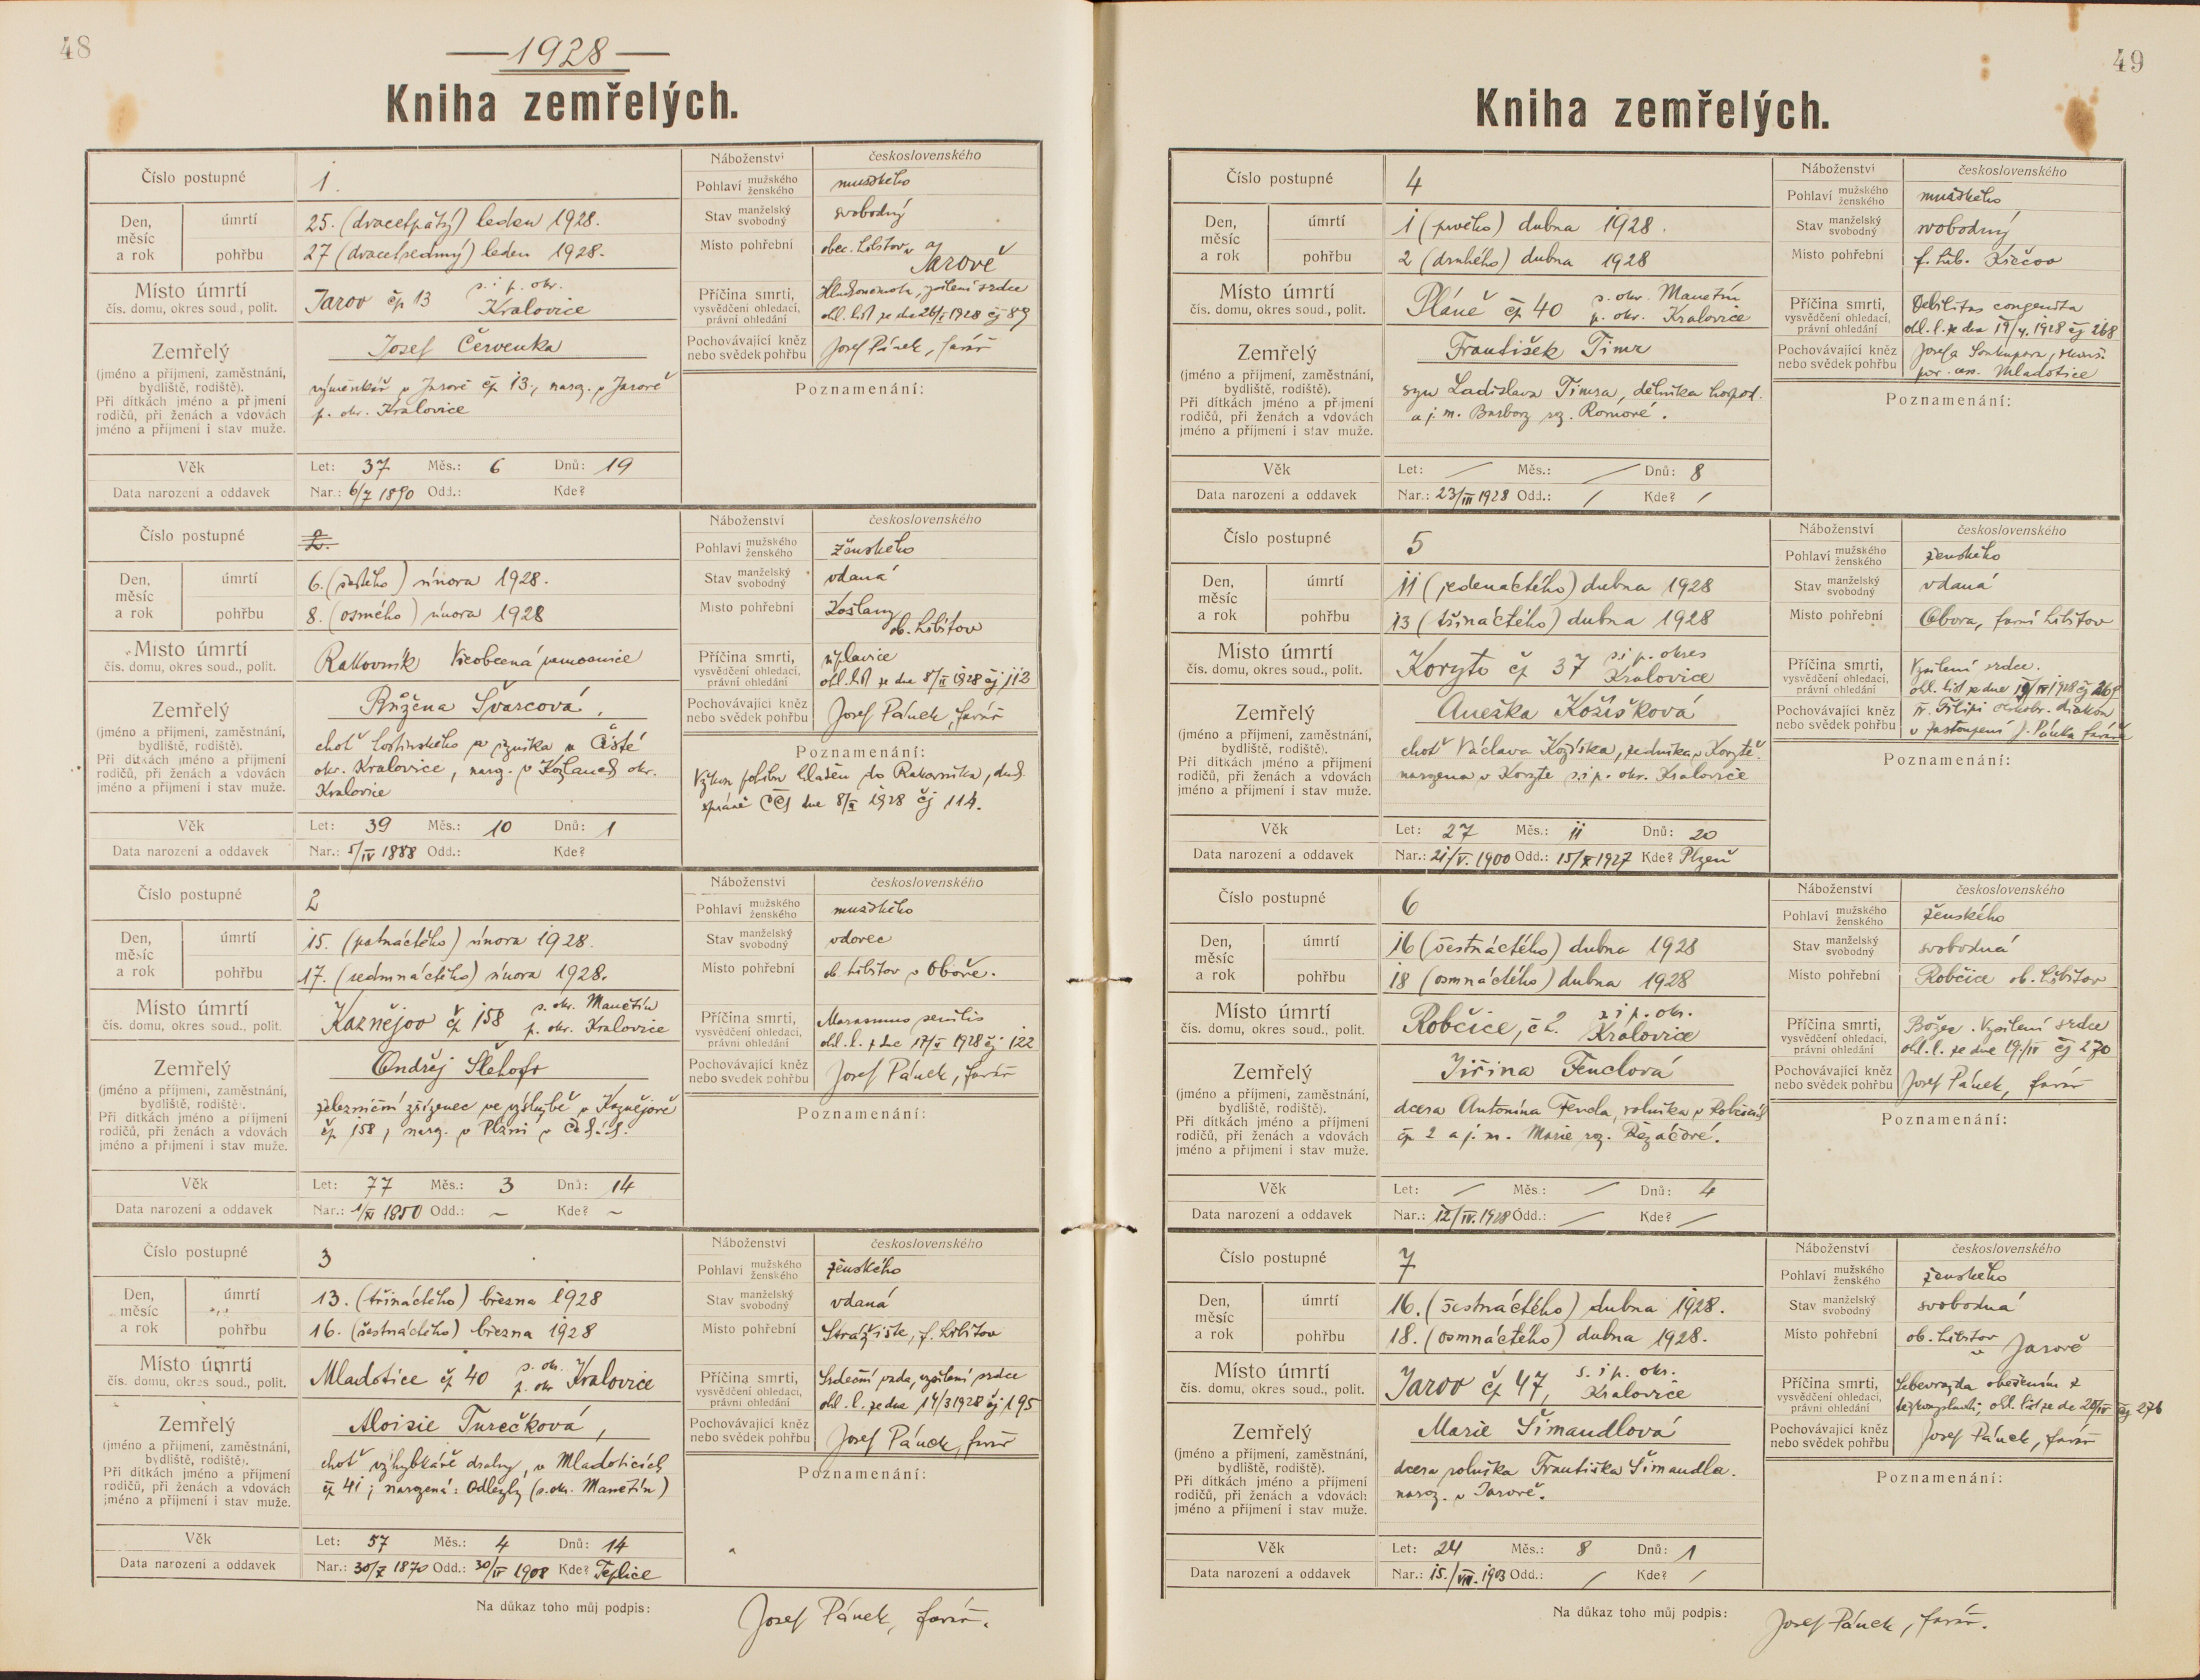 48
1928
Kniha zemřelých.
Číslo postupné 1.
Náboženství československého
Pohlaví mužského ženského mužského
Den, měsíc a rok úmrtí 25. (dvacetpátý) leden 1928.
Stav manželský svobodný svobodný
pohřbu 27 (dvacetsedmý) leden 1928.
Místo pohřební obec. hřbitov v Jarově
Místo úmrtí
čís. domu, okres soud., polit.
Jarov čp 13 s. i p. okr. Kralovice
Příčina smrti, vysvědčení ohledací, právní ohledání
srdce
ohl. list ze dne 26/I 1928 čj 89
Zemřelý
Josef Červenka
Pochovávající kněz nebo svědek pohřbu Josef Pánek, farář
(jméno a příjmení, zaměstnání, bydliště, rodiště).
Při dítkách jméno a příjmení rodičů, při ženách a vdovách jméno a příjmení i stav muže.
výměnkář v Jarově čp. 13., naroz. v Jarově
p. okr. Kralovice
Poznamenání:
Věk Let: 37 Měs.: 6 Dnů: 19
Data narození a oddavek Nar.: 6/7 1890 Odd.: Kde?
Číslo postupné 2.
Náboženství československého
Pohlaví mužského ženského ženského
Den, měsíc a rok úmrtí 6. (šestého) února 1928.
Stav manželský svobodný vdaná
pohřbu 8. (osmého) února 1928
Místo pohřební Kožlany ob. hřbitov
Místo úmrtí
čís. domu, okres soud., polit.
Rakovník Všeobecná nemocnice
Příčina smrti, vysvědčení ohledací, právní ohledání
úplavice
ohl. list ze dne 8/II 1928 čj 113
Zemřelý
Růžena Švarcová,
Pochovávající kněz nebo svědek pohřbu Josef Pánek, farář
(jméno a příjmení, zaměstnání, bydliště, rodiště).
Při dítkách jméno a příjmení rodičů, při ženách a vdovách jméno a příjmení i stav muže.
choť hostinského a řezníka v Čisté
okr. Kralovice, naroz. v Kožlanech okr.
Kralovice
Poznamenání:
Výkon pohřbu hlášen do Rakovníka, duch.
správě CČS dne 8/II 1928 čj 114.
Věk Let: 39 Měs.: 10 Dnů: 1
Data narození a oddavek Nar.: 5/IV 1888 Odd.: Kde?
Číslo postupné 2
Náboženství československého
Pohlaví mužského ženského mužského
Den, měsíc a rok úmrtí 15. (patnáctého) února 1928.
Stav manželský svobodný vdovec
pohřbu 17. (sedmnáctého) února 1928.
Místo pohřební ob hřbitov v Oboře.
Místo úmrtí
čís. domu, okres soud., polit.
Kaznějov čp 158 s. okr. Manětín p. okr. Kralovice
Příčina smrti, vysvědčení ohledací, právní ohledání
Marasmus senilis
ohl. l. z dne 17/II 1928 čj 122
Zemřelý
Ondřej Šlehofr
Pochovávající kněz nebo svědek pohřbu Josef Pánek, farář
(jméno a příjmení, zaměstnání, bydliště, rodiště).
Při dítkách jméno a příjmení rodičů, při ženách a vdovách jméno a příjmení i stav muže.
železniční zřízenec ve výslužbě v Kaznějově
čp. 158, naroz. v Plzni v Čechách.
Poznamenání:
Věk Let: 77 Měs.: 3 Dnů: 14
Data narození a oddavek Nar.: 1/XI 1850 Odd.: ~ Kde? ~
Číslo postupné 3
Náboženství československého
Pohlaví mužského ženského ženského
Den, měsíc a rok úmrtí 13. (třináctého) března 1928
Stav manželský svobodný vdaná
pohřbu 16. (šestnáctého) března 1928
Místo pohřební Strážiště, f. hřbitov
Místo úmrtí
čís. domu, okres soud., polit.
Mladotice čp 40 s. ok. p. okr Kralovice
Příčina smrti, vysvědčení ohledací, právní ohledání
Srdeční vada, vysílení srdce
ohl. l. ze dne 14/3 1928 čj 195
Zemřelý
Aloisie Turečková,
Pochovávající kněz nebo svědek pohřbu Josef Pánek, farář
(jméno a příjmení, zaměstnání, bydliště, rodiště).
Při dítkách jméno a příjmení rodičů, při ženách a vdovách jméno a příjmení i stav muže.
choť výhybkáře dráhy, v Mladoticích
čp 41; narozená: Odlezly (s. okr. Manětín)
Poznamenání:
Věk Let: 57 Měs.: 4 Dnů: 14
Data narození a oddavek Nar.: 30/X 1870 Odd.: 30/IV 1908 Kde? Teplice
Na důkaz toho můj podpis: Josef Pánek, farář.
49
Kniha zemřelých.
Číslo postupné 4
Náboženství československého
Pohlaví mužského ženského mužského
Den, měsíc a rok úmrtí 1 (prvého) dubna 1928.
Stav manželský svobodný svobodný
pohřbu 2 (druhého) dubna 1928
Místo pohřební f. hřb. Křečov
Místo úmrtí
čís. domu, okres soud., polit.
Pláně čp 40 s. okr. Manětín p. okr. Kralovice
Příčina smrti, vysvědčení ohledací, právní ohledání
Debilitas congenita
ohl. l. ze dne 19/4. 1928 čj 268
Zemřelý
František Timr
Pochovávající kněz nebo svědek pohřbu Josefa Soukupova, zkouš. por. as. Mladotice
(jméno a příjmení, zaměstnání, bydliště, rodiště).
Při dítkách jméno a příjmení rodičů, při ženách a vdovách jméno a příjmení i stav muže.
syn Ladislava Timra, dělníka hospod.
a j. m. Barbory roz. Romové.
Poznamenání:
Věk Let: / Měs.: / Dnů: 8
Data narození a oddavek Nar.: 23/III 1928 Odd.: / Kde? /
Číslo postupné 5
Náboženství československého
Pohlaví mužského ženského ženského
Den, měsíc a rok úmrtí 11 (jedenáctého) dubna 1928
Stav manželský svobodný vdaná
pohřbu 13 (třináctého) dubna 1928
Místo pohřební Obora, farní hřbitov
Místo úmrtí
čís. domu, okres soud., polit.
Koryto čp 37 s. i p. okres Kralovice
Příčina smrti, vysvědčení ohledací, právní ohledání
Vysílení srdce.
ohl. list ze dne 19/IV 1928 čj 269
Zemřelý
Anežka Kožíšková
Pochovávající kněz nebo svědek pohřbu diakon v zastoupení J. Pánka faráře
(jméno a příjmení, zaměstnání, bydliště, rodiště).
Při dítkách jméno a příjmení rodičů, při ženách a vdovách jméno a příjmení i stav muže.
choť Václava Kožíška, zedníka v Korytě.
narozena v Koryte s. i p. okr. Kralovice
Poznamenání:
Věk Let: 27 Měs.: 11 Dnů: 20
Data narození a oddavek Nar.: 21/V. 1900 Odd.: 15/X 1927 Kde? Plzeň
Číslo postupné 6
Náboženství československého
Pohlaví mužského ženského ženského
Den, měsíc a rok úmrtí 16 (šestnáctého) dubna 1928
Stav manželský svobodný svobodná
pohřbu 18 (osmnáctého) dubna 1928
Místo pohřební Robčice ob. hřbitov
Místo úmrtí
čís. domu, okres soud., polit.
Robčice, č 2. s i p. okr. Kralovice
Příčina smrti, vysvědčení ohledací, právní ohledání
Božec. Vysílení srdce
ohl. l. ze dne 19./IV čj 270
Zemřelý
Jiřina Fenclová
Pochovávající kněz nebo svědek pohřbu Josef Pánek, farář
(jméno a příjmení, zaměstnání, bydliště, rodiště).
Při dítkách jméno a příjmení rodičů, při ženách a vdovách jméno a příjmení i stav muže.
dcera Antonína Fencla, rolníka v Robčicích
čp 2 a j. m. Marie roz. Řezáčové.
Poznamenání:
Věk Let: / Měs.: / Dnů: 4
Data narození a oddavek Nar.: 12/IV. 1928 Odd.: / Kde? /
Číslo postupné 7
Náboženství československého
Pohlaví mužského ženského ženského
Den, měsíc a rok úmrtí 16. (šestnáctého) dubna 1928.
Stav manželský svobodný svobodná
pohřbu 18. (osmnáctého) dubna 1928.
Místo pohřební ob. hřbitov v Jarově
Místo úmrtí
čís. domu, okres soud., polit.
Jarov čp 47, s. i p. okr. Kralovice
Příčina smrti, vysvědčení ohledací, právní ohledání
Sebevražda oběšením z
ohl. list ze dne 20/IV čj 276
Zemřelý
Marie Šimandlová
Pochovávající kněz nebo svědek pohřbu Josef Pánek, farář
(jméno a příjmení, zaměstnání, bydliště, rodiště).
Při dítkách jméno a příjmení rodičů, při ženách a vdovách jméno a příjmení i stav muže.
dcera rolníka Františka Šimandla.
naroz. v Jarově.
Poznamenání:
Věk Let: 24 Měs.: 8 Dnů: 1
Data narození a oddavek Nar.: 15./VIII. 1903 Odd.: / Kde? /
Na důkaz toho můj podpis: Josef Pánek, farář.